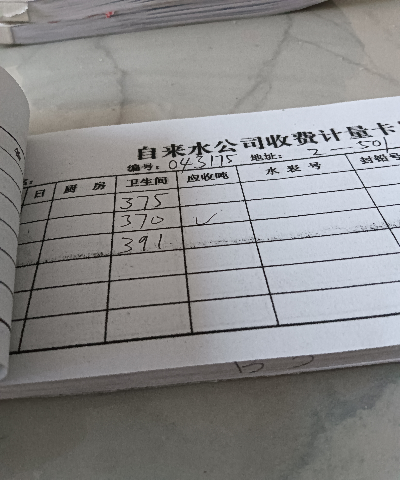 自来水公司收费计量卡
编号: 043175 地址: 2—501
日 厨房 卫生间 应收吨 水表号 封铅号
375
370 ✓
391